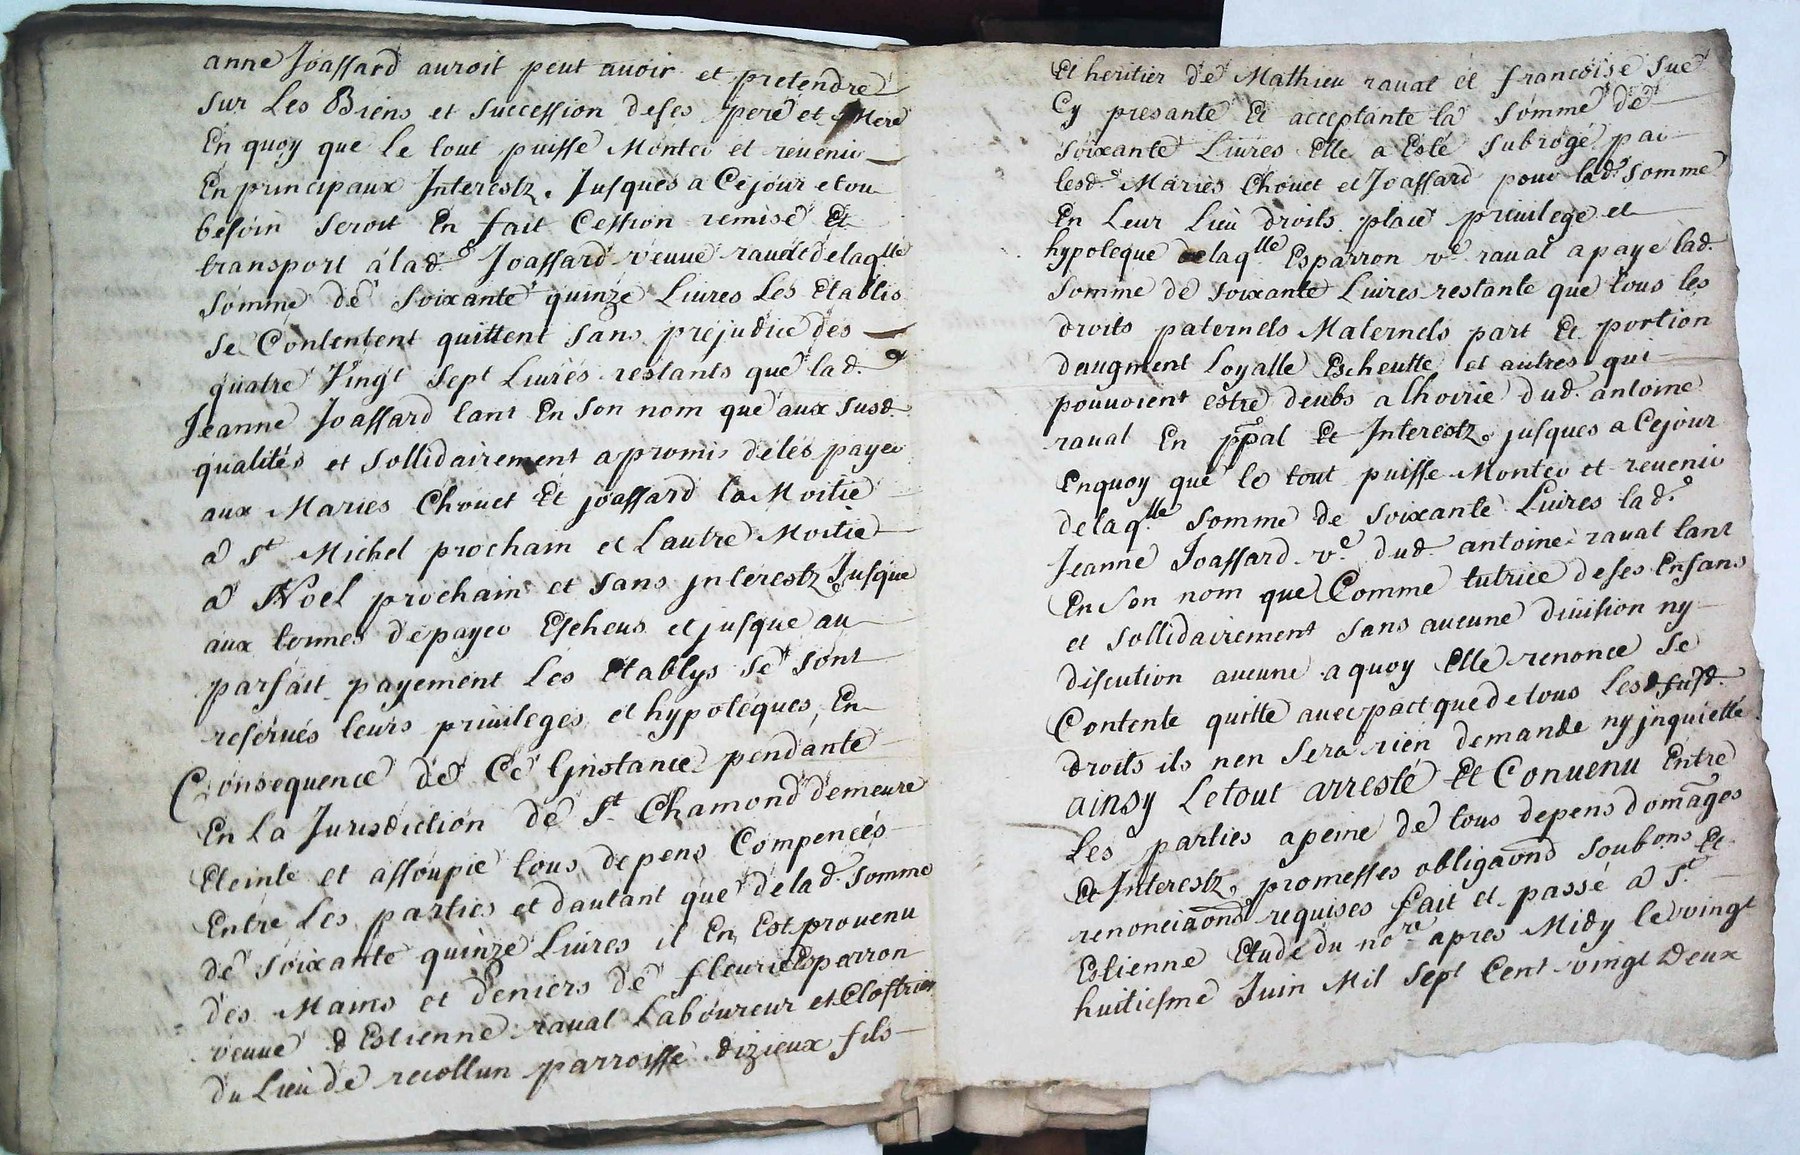 anne Joassard auroit peut avoir et pretendre
sur Les Biens et succession deses pere et Mere
En quoy que le tout puisse Monter et revenir
En principaux Interestz, Jusques a Cejour et ou
besoin seroit En fait Cession remise Et
transport à lad.e Joassard veuve raval delaqlle
somme de soixante quinze Livres Les Etablis
se Contentent quittent sans prejudice des
quatre Vingt sept Livres restants que lad.e
Jeanne Joassard tant En son nom que aux susd.
qualités et sollidairement a promis deles payer
aux Maries Chouet Et joassard la Moitié
a St Michel prochain et Lautre Moitié
a Noel prochain et sans jnterestz Jusque
aux termes depayer Escheus et jusque au
parfait payement Les Etablys se sont
reservés leurs privileges et hypoteques, En
Consequence de Ce Ljnstance pendante
En La Jurisdiction de St Chamond demeure
Eteinte et assoupie tous depens Compencés
Entre Les parties et dautant que delad. somme
de soixante quinze Livres il En Est provenu
des Mains et deniers de fleurie Esparron
veuve dEstienne raval Laboureur et Clostrier
du Lieu de recollun parroisse dizieux fils
Et heritier de Mathieu raval et francoise sue
Cy presante Et acceptante la somme de
soixante Livres Elle a Esté subrogé par
lesd.s Maries Chouet et Joassard pour lad.e somme
En Leur Lieu droits place privilege et
hypoteque delaqlle Esparron ve raval a paye lad.
somme de soixante Livres restante que tous les
droits paternels Maternels part Et portion
daugment Loyalle Escheutte et autres qui
pouvoient estre deubs a lhoirie dud. antoine
raval En ppal Et Interestz, jusques a Cejour
Enquoy que le tout puisse Monter et revenir
delaqlle somme de soixante Livres lad.e
Jeanne Joassard ve dud. antoine raval tant
En son nom que Comme tutrice deses Enfans
et sollidairement sans aucune division ny
discution aucune a quoy Elle renonce se
Contente quitte avec pact que de tous Les susd.
droits ils nen sera rien demande ny jnquietté
ainsy Letout arresté Et Convenu Entre
Les parties apeine de tous depens domages
Et Interestz, promesses obligaons soubons Et
renonciaons requises fait et passé a St
Estienne Etude du nore apres Midy le vingt
huitiesme Juin Mil sept Cent vingt deux